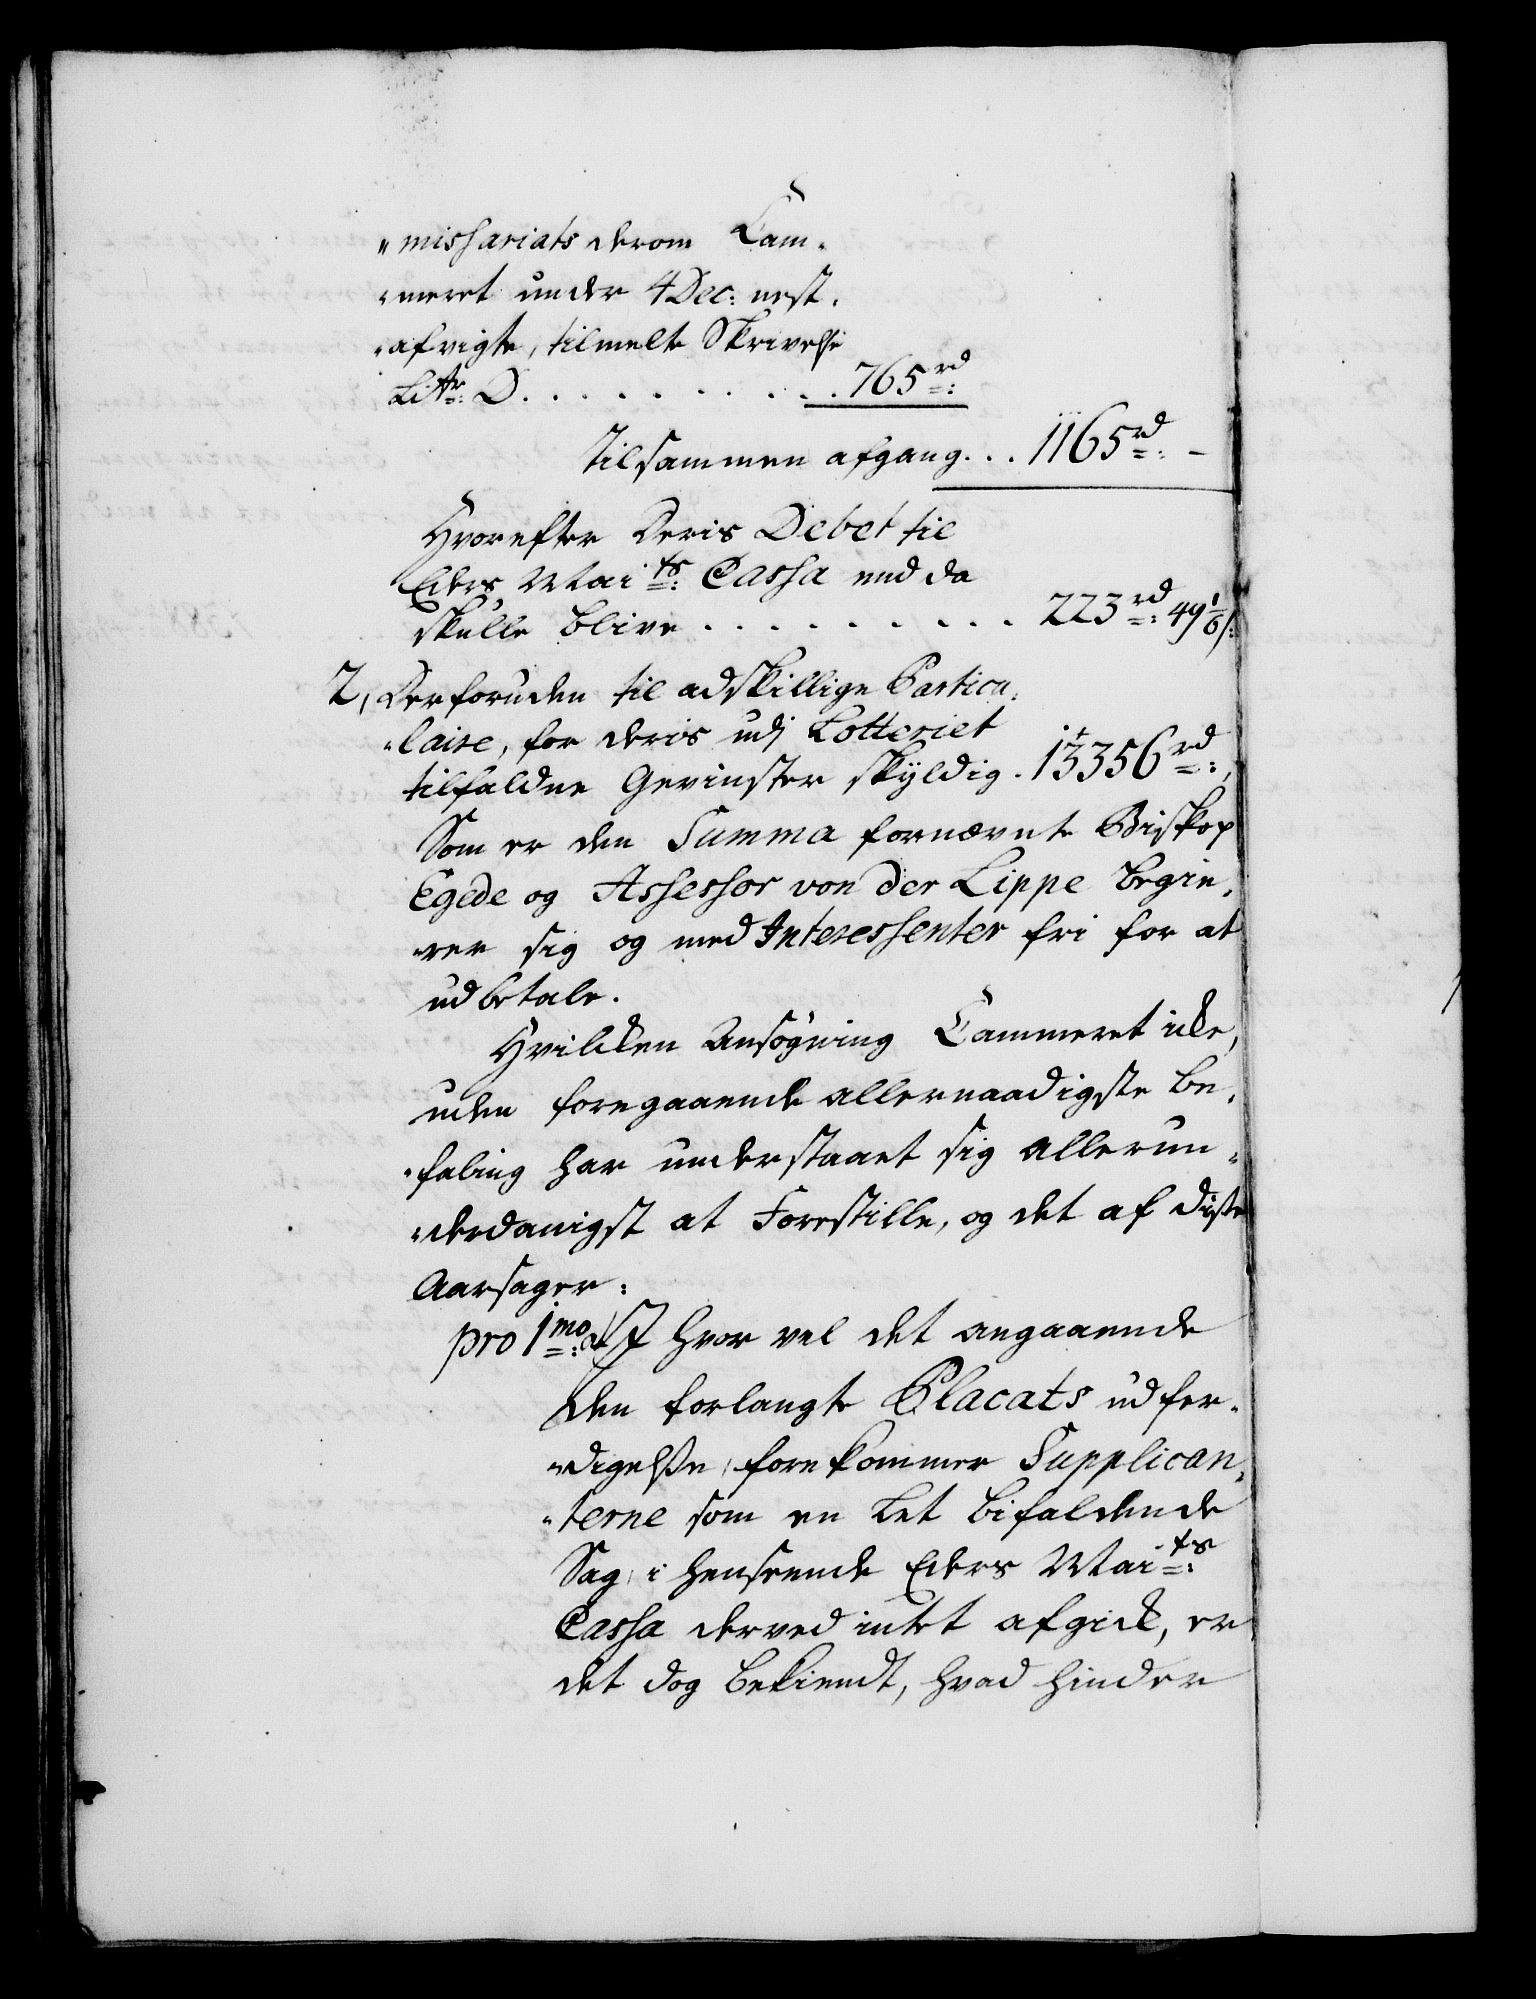 "missariats derom Cam-
"meret under 4 Dec: nest-
"afvigte, tilmelte Skrivelse
Littr: D. . . . . . . . . . 765 rd:
Tilsammen afgang. . . 1165 rd: -
Hvorefter Deris Debet til
Eders Maits: Cassa end da
skulle blive . . . . . . . . . 223 rd: 49 1/6 s:
2, Derforuden til adskillige Particu-
"laire, for deris udj Lotteriet
tilfaldne Gevinster skyldig. 13356 rd:,
Som er den Summa fornævnte Biskop
Egede og Assessor von der Lippe begie-
"rer sig og med Interessenter fri for at
udbetale.
Hvilcken Ansøgning Cammeret icke,
uden foregaaende allernaadigste be-
"faling har understaaet sig allerun-
"derdanigst at Forestille, og det af disse
Aarsager:
pro 1mo: at Ihvor vel det angaaende
den forlangte Placats udfer-
"digelse, forekommer Supplican-
"terne som en let bifaldende
Sag, i henseende Eders Maits:
Cassa derved intet afgick, er
det dog bekiendt, hvad hinder